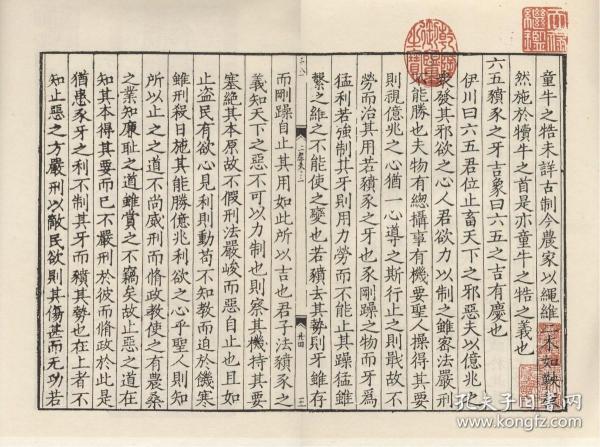 童牛之牿未詳古制今農家以繩維一木如鞅
然施於犢牛之首是亦童牛之牿之義也
六五豶豕之牙吉象曰六五之吉有慶也
伊川曰六五君位止畜天下之邪惡夫以億兆之
衆發其邪欲之心人君欲力以制之雖密法嚴刑
不能勝也夫物有總攝事有機要聖人操得其要
則視億兆之心猶一心導之斯行止之則戢故不
勞而治其用若豶豕之牙也豕剛躁之物而牙爲
猛利若強制其牙則用力勞而不能止其躁猛雖
縶之維之不能使之變也若豶去其勢則牙雖存
而剛躁自止其用如此所以吉也君子法豶豕之
義知天下之惡不可以力制也則察其機持其要
塞絕其本原故不假刑法嚴峻而惡自止也且如
止盗民有欲心見利則動苟不知教而迫於饑寒
雖刑殺日施其能勝億兆利欲之心乎聖人則知
所以止之之道不尚威刑而脩政教使之有農桑
之業知廉耻之道雖賞之不竊矣故止惡之道在
知其本得其要而已不嚴刑於彼而脩政於此是
猶患豕牙之利不制其牙而豶其勢也在上者不
知止惡之方嚴刑以敵民欲則其傷甚而无功若
孔夫子旧书网